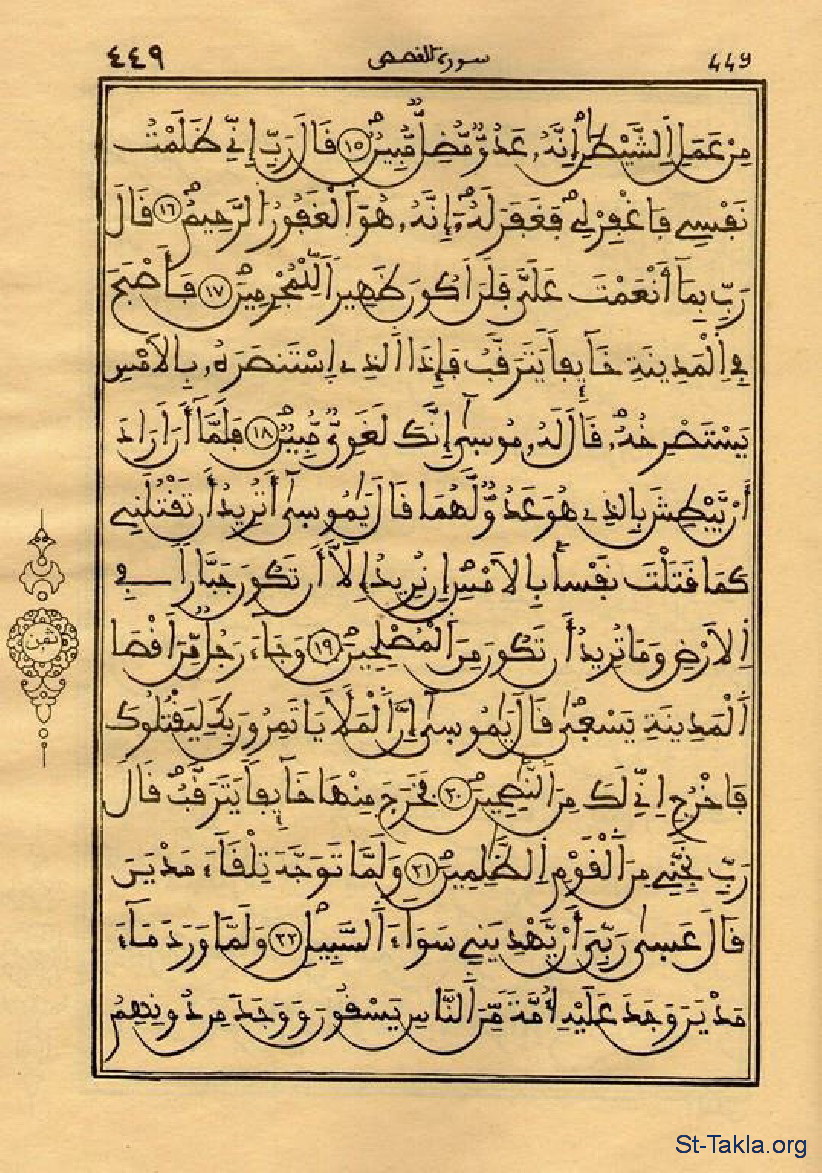 ٤٤٩ سورة القصص 449
مِنْ عَمَلِ اِ۬لشَّيْطَٰنِۖ إِنَّهُۥ عَدُوّٞ مُّضِلّٞ مُّبِينٞۖ ١٥ قَالَ رَبِّ إِنِّے ظَلَمْتُ
نَفْسِے فَاغْفِرْ لِے فَغَفَرَ لَهُۥٓۖ إِنَّهُۥ هُوَ اَ۬لْغَفُورُ اُ۬لرَّحِيمُۖ ١٦ قَالَ
رَبِّ بِمَآ أَنْعَمْتَ عَلَيَّ فَلَنَ اَكُونَ ظَهِيراٗ لِّلْمُجْرِمِينَۖ ١٧ فَأَصْبَحَ
فِے اِ۬لْمَدِينَةِ خَآئِفاٗ يَتَرَقَّبُ فَإِذَا اَ۬لذِے اِ۪سْتَنصَرَهُۥ بِالَامْسِ
يَسْتَصْرِخُهُۥۖ قَالَ لَهُۥ مُوسَىٰٓ إِنَّكَ لَغَوِيّٞ مُّبِينٞۖ ١٨ فَلَمَّآ أَنَ اَرَادَ
أَنْ يَّبْطِشَ بِالذِے هُوَ عَدُوّٞ لَّهُمَا قَالَ يَٰمُوسَىٰٓ أَتُرِيدُ أَن تَقْتُلَنِے
كَمَا قَتَلْتَ نَفْساَۢ بِالَامْسِۖ إِن تُرِيدُ إِلَّآ أَن تَكُونَ جَبَّاراٗ فِے
اِ۬لَارْضِ وَمَا تُرِيدُ أَن تَكُونَ مِنَ اَ۬لْمُصْلِحِينَۖ ١٩ وَجَآءَ رَجُلٞ مِّنَ اَقْصَا
اَ۬لْمَدِينَةِ يَسْعَىٰ قَالَ يَٰمُوسَىٰٓ إِنَّ اَ۬لْمَلَأَ يَاتَمِرُونَ بِكَ لِيَقْتُلُوكَ
فَاخْرُجِ اِنِّے لَكَ مِنَ اَ۬لنَّٰصِحِينَۖ ٢٠ فَخَرَجَ مِنْهَا خَآئِفاٗ يَتَرَقَّبُۖ قَالَ
رَبِّ نَجِّنِے مِنَ اَ۬لْقَوْمِ اِ۬لظَّٰلِمِينَۖ ٢١ وَلَمَّا تَوَجَّهَ تِلْقَآءَ مَدْيَنَ
قَالَ عَسَىٰ رَبِّيَ أَنْ يَّهْدِيَنِے سَوَآءَ اَ۬لسَّبِيلِۖ ٢٢ وَلَمَّا وَرَدَ مَآءَ
مَدْيَنَ وَجَدَ عَلَيْهِ أُمَّةٗ مِّنَ اَ۬لنَّاسِ يَسْقُونَ وَوَجَدَ مِن دُونِهِمُ
ثمن
St-Takla.org